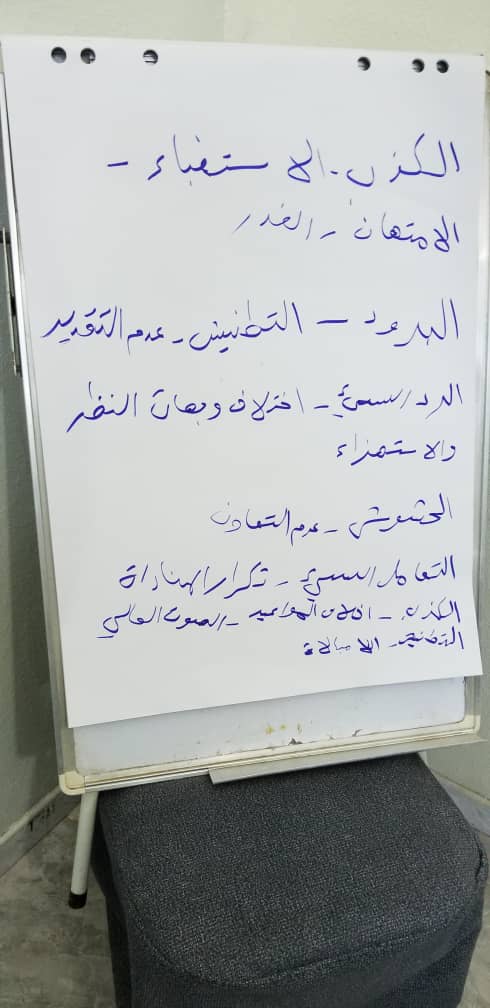 الكذب - الاستغباء -
الامتهان - الغدر
البرود - التطنيش - عدم التقدير
الرد السيئ - اختلاف وجهات النظر
والاستهزاء
عدم التعاون
التعامل السيئ - تكرار المناداة
الكذب - اخلاف المواعيد - الصوت العالي
التطنيش - اللامبالاة